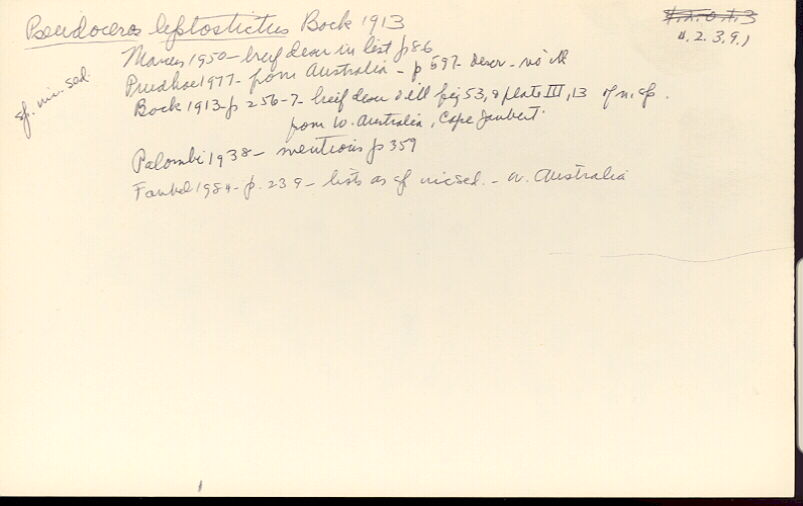 Pseudoceros leptostictus Bock 1913
4.2.3.9.1
sp. inc. sed.
Marcus 1950 - brief descr in list p 86
Prudhoe 1977 - from Australia - p 597 - descr - no ill
Bock 1913 - p 256-7 - brief descr & ill fig 53, & plate III, 13 of n. sp.
from W. Australia, Cape Jaubert.
Palombi 1938 - mentions p 359
Faubel 1984 - p. 239 - lists as sp inc sed. - W. Australia